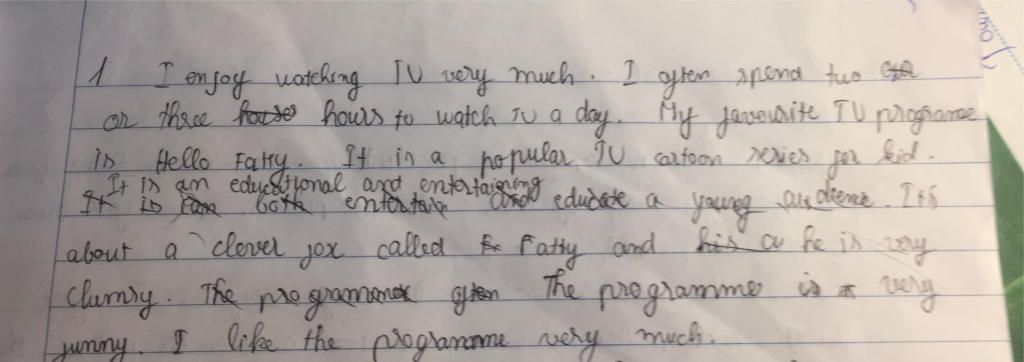 1 I enjoy watching TV very much. I often spend two
or three hours to watch TV a day. My favourite TV programe
is Hello Fatty. It is a popular TV cartoon series for kid.
It is an educational and entertaining
It is both entertain and educate a young audience. Its
about a clever fox called Fatty and his a he is very
clumsy. The programme often The programme is very
funny. I like the programme very much.